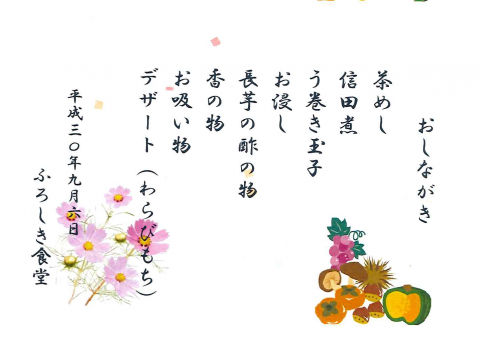 おしながき
茶めし
信田煮
う巻き玉子
お浸し
長芋の酢の物
香の物
お吸い物
デザート（わらびもち）
平成三〇年九月六日
ふろしき食堂